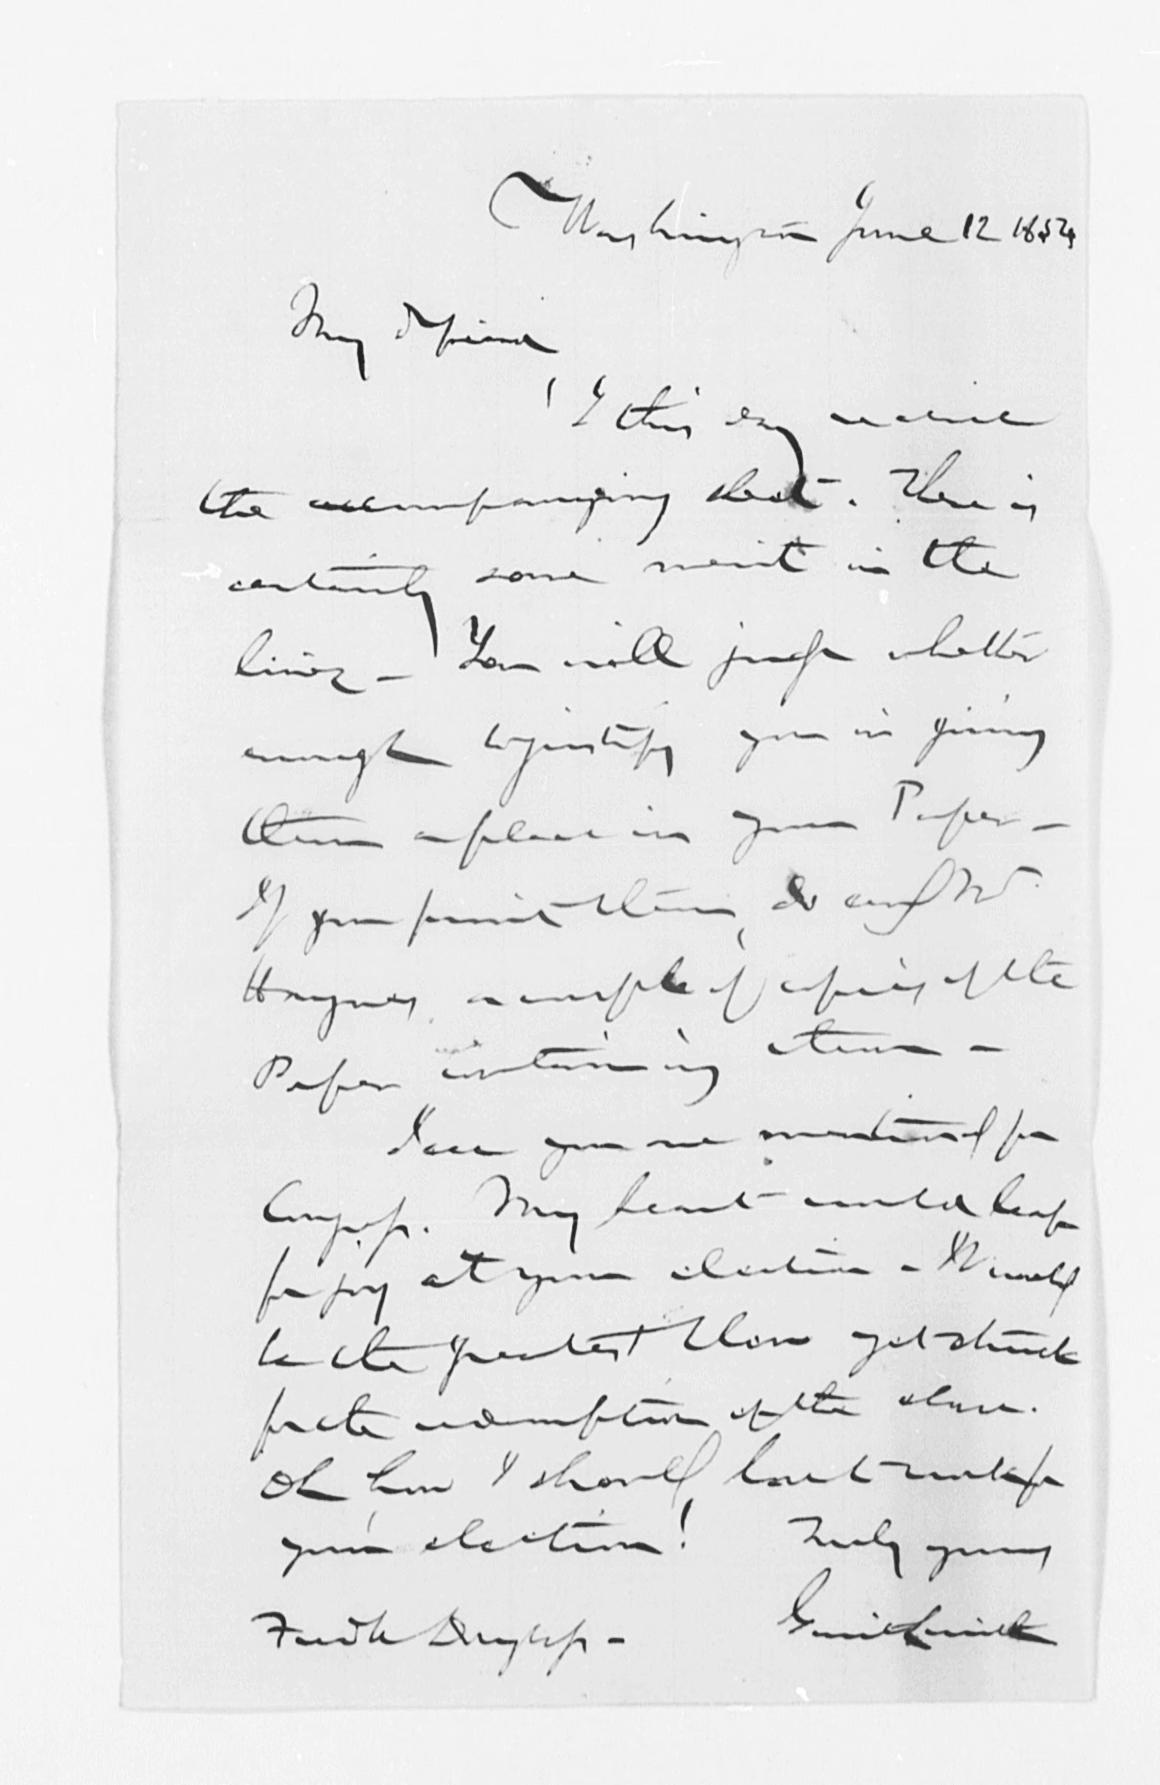 Washington June 12 1854
My dr friend,
I this day received
the accompanying sheet. There is
certainly some merit in the
lines — You will judge whether
enough to justify you in giving
them a place in your Paper —
If you print them, do send Mr
Haynes a couple of copies of the
Paper containing them —
I see you are mentioned for
Congress. My heart would leap
for joy at your election — It would
be the greatest blow yet struck
for the redemption of the slave.
Oh how I should love to work for
your election! Truly yours
Fredk Douglass — Gerrit Smith